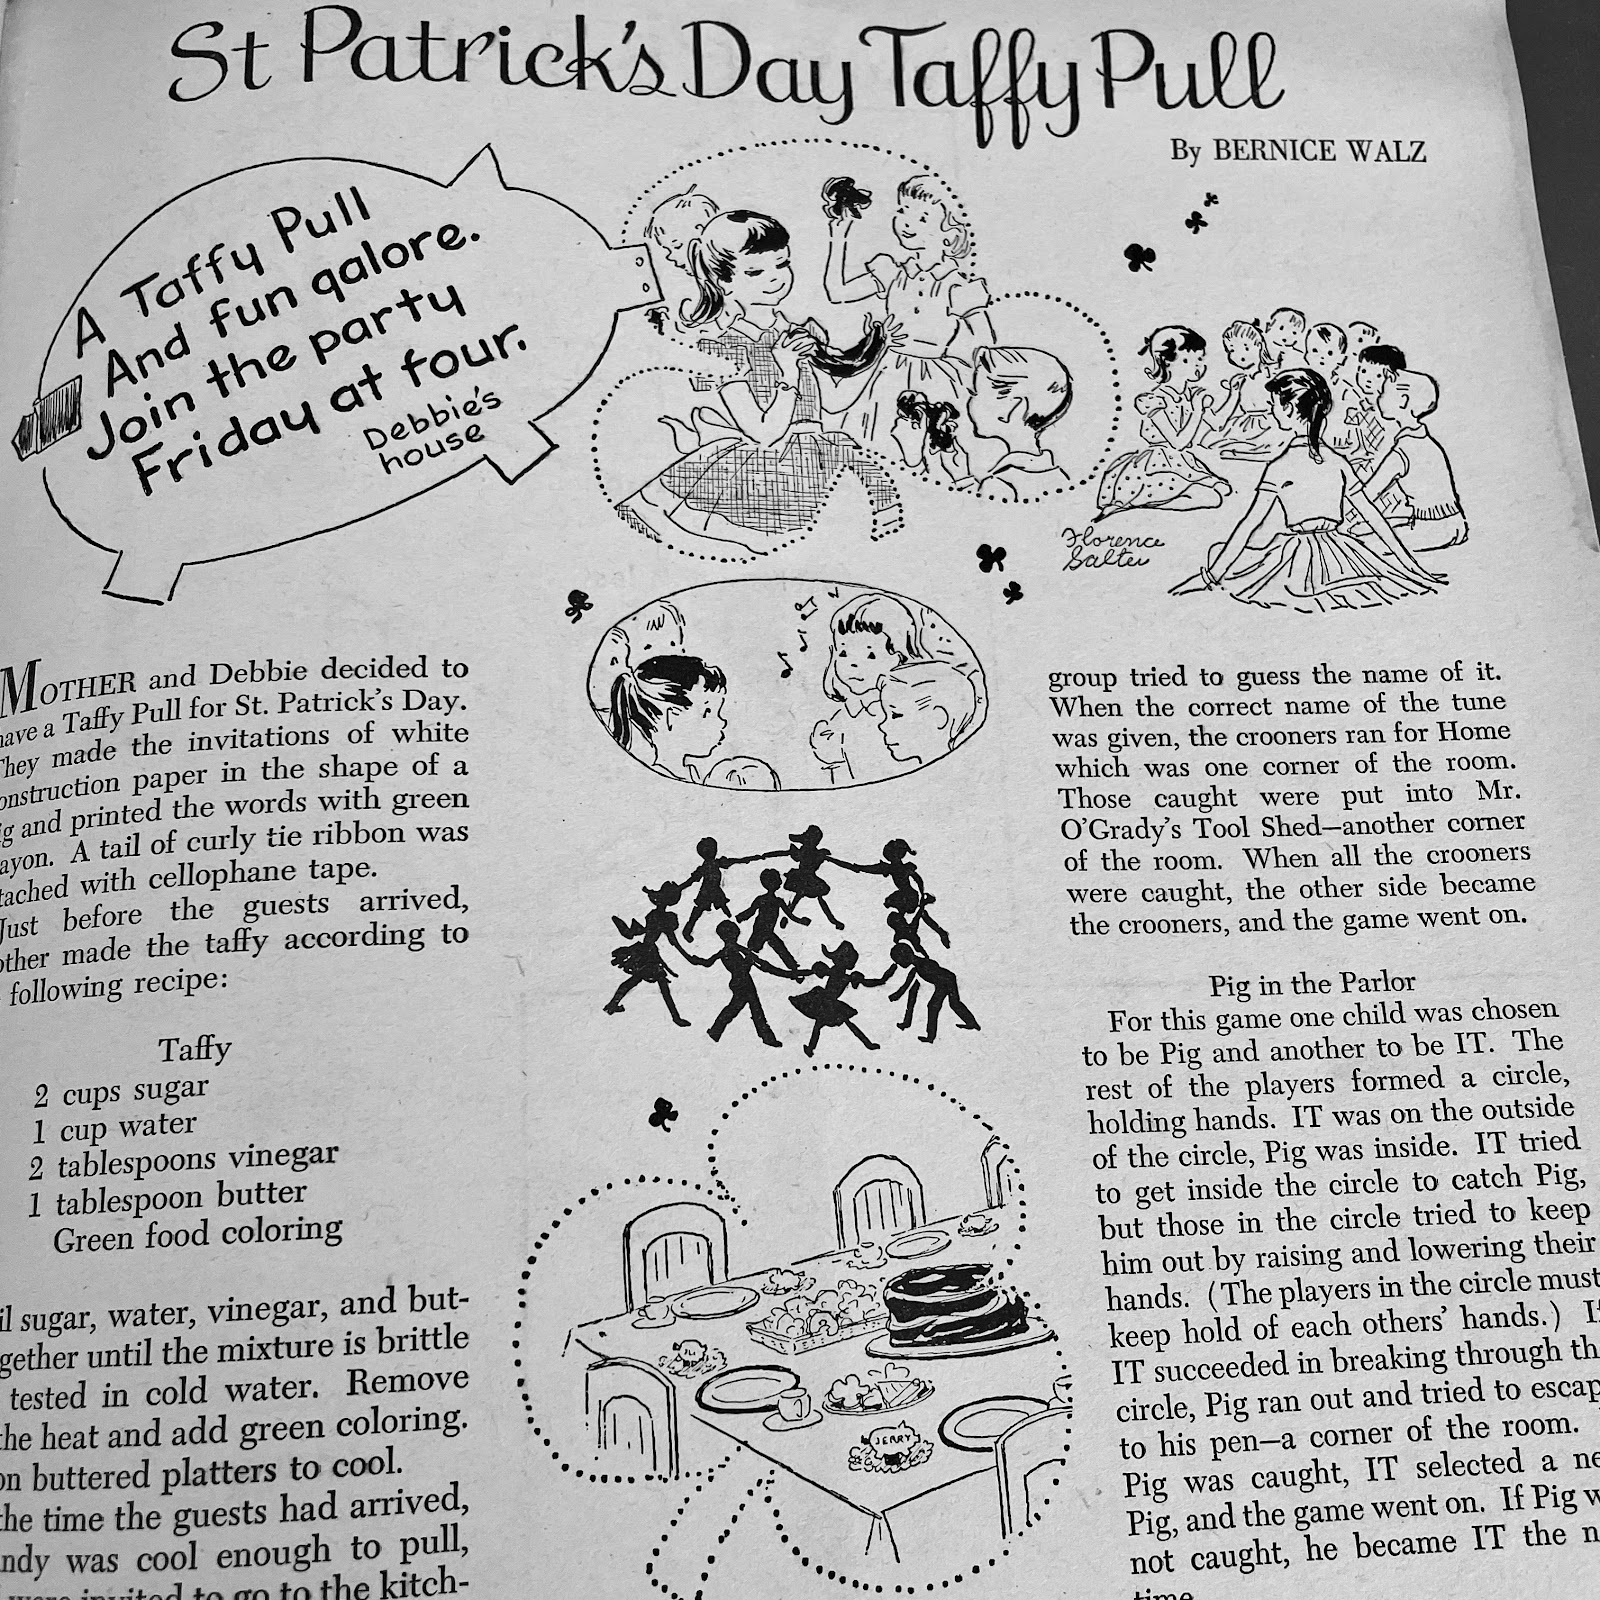 St Patrick's Day Taffy Pull
By BERNICE WALZ
A Taffy Pull
And fun galore.
Join the party
Friday at four.
Debbie's
house
Florence
Salter
MOTHER and Debbie decided to
have a Taffy Pull for St. Patrick's Day.
They made the invitations of white
onstruction paper in the shape of a
ig and printed the words with green
ayon. A tail of curly tie ribbon was
tached with cellophane tape.
Just before the guests arrived,
other made the taffy according to
following recipe:
Taffy
2 cups sugar
1 cup water
2 tablespoons vinegar
1 tablespoon butter
Green food coloring
il sugar, water, vinegar, and but-
gether until the mixture is brittle
tested in cold water. Remove
the heat and add green coloring.
on buttered platters to cool.
the time the guests had arrived,
andy was cool enough to pull,
were invited to go to the kitch-
JILL
JERRY
group tried to guess the name of it.
When the correct name of the tune
was given, the crooners ran for Home
which was one corner of the room.
Those caught were put into Mr.
O'Grady's Tool Shed—another corner
of the room. When all the crooners
were caught, the other side became
the crooners, and the game went on.
Pig in the Parlor
For this game one child was chosen
to be Pig and another to be IT. The
rest of the players formed a circle,
holding hands. IT was on the outside
of the circle, Pig was inside. IT tried
to get inside the circle to catch Pig,
but those in the circle tried to keep
him out by raising and lowering their
hands. (The players in the circle must
keep hold of each others' hands.) If
IT succeeded in breaking through th
circle, Pig ran out and tried to escap
to his pen—a corner of the room.
Pig was caught, IT selected a ne
Pig, and the game went on. If Pig w
not caught, he became IT the n
time.